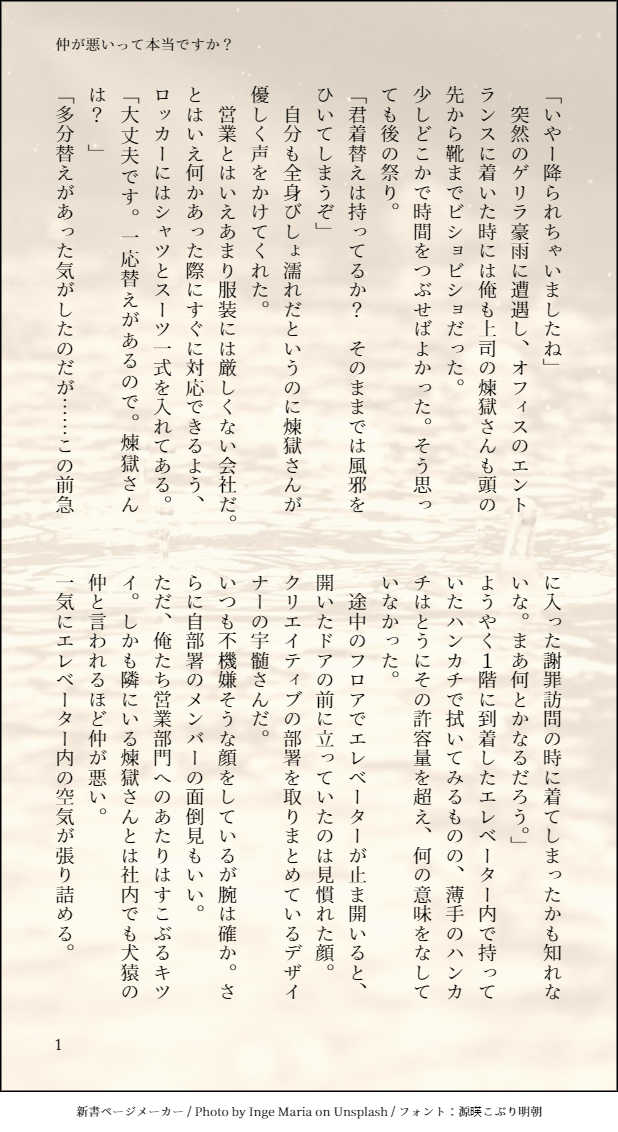 仲が悪いって本当ですか？
「いやー降られちゃいましたね」
　突然のゲリラ豪雨に遭遇し、オフィスのエント
ランスに着いた時には俺も上司の煉獄さんも頭の
先から靴までビショビショだった。
少しどこかで時間をつぶせばよかった。そう思っ
ても後の祭り。
「君着替えは持ってるか？　そのままでは風邪を
ひいてしまうぞ」
　自分も全身びしょ濡れだというのに煉獄さんが
優しく声をかけてくれた。
　営業とはいえあまり服装には厳しくない会社だ。
とはいえ何かあった際にすぐに対応できるよう、
ロッカーにはシャツとスーツ一式を入れてある。
「大丈夫です。一応替えがあるので。煉獄さん
は？　」
「多分替えがあった気がしたのだが……この前急
に入った謝罪訪問の時に着てしまったかも知れな
いな。まあ何とかなるだろう。」
ようやく１階に到着したエレベーター内で持って
いたハンカチで拭いてみるものの、薄手のハンカ
チはとうにその許容量を超え、何の意味をなして
いなかった。
　途中のフロアでエレベーターが止ま開いると、
開いたドアの前に立っていたのは見慣れた顔。
クリエイティブの部署を取りまとめているデザイ
ナーの宇髄さんだ。
いつも不機嫌そうな顔をしているが腕は確か。さ
らに自部署のメンバーの面倒見もいい。
ただ、俺たち営業部門へのあたりはすこぶるキツ
イ。しかも隣にいる煉獄さんとは社内でも犬猿の
仲と言われるほど仲が悪い。
一気にエレベーター内の空気が張り詰める。
1
新書ページメーカー / Photo by Inge Maria on Unsplash / フォント：源暎こぶり明朝